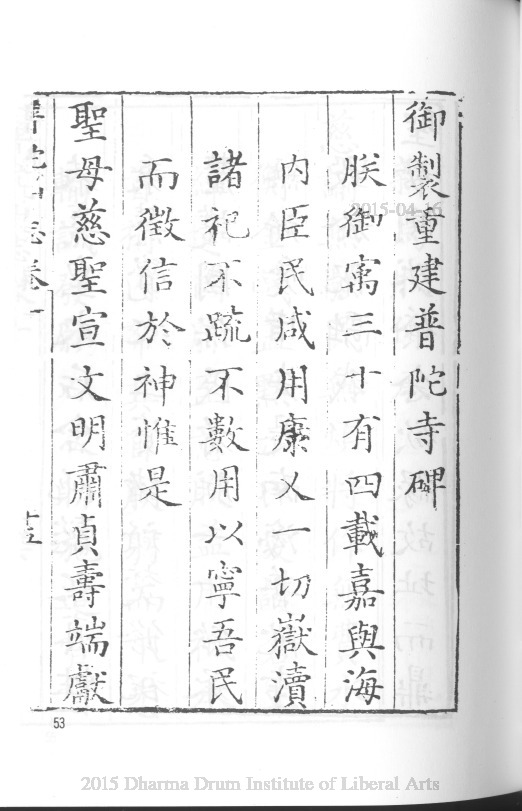 御製重建普陀寺碑
朕御寓三十有四載嘉與海
内臣民咸用康乂一切嶽瀆
諸祀不䟽不數用以寧吾民
而徵信於神惟是
聖母慈聖宣文明肅貞壽端獻
志卷一
十五
53
2015-04-16
2015 Dharma Drum Institute of Liberal Arts